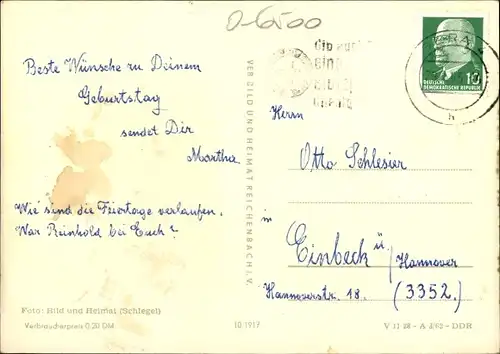 D-6500
Beste Wünsche zu Deinem
Geburtstag
sendet Dir
Martha.
Wie sind die Feiertage verlaufen.
War Reinhold bei Euch?
Foto: Bild und Heimat (Schlegel)
Verbraucherpreis 0,20 DM
VEB BILD UND HEIMAT REICHENBACH I. V.
10 1917
GERA
h
10
DEUTSCHE
DEMOKRATISCHE REPUBLIK
Herrn
Otto Schlesier
in
Einbeck ü/Hannover
Hannoverstr. 18. (3352.)
V 11 28 - A 1/62 - DDR